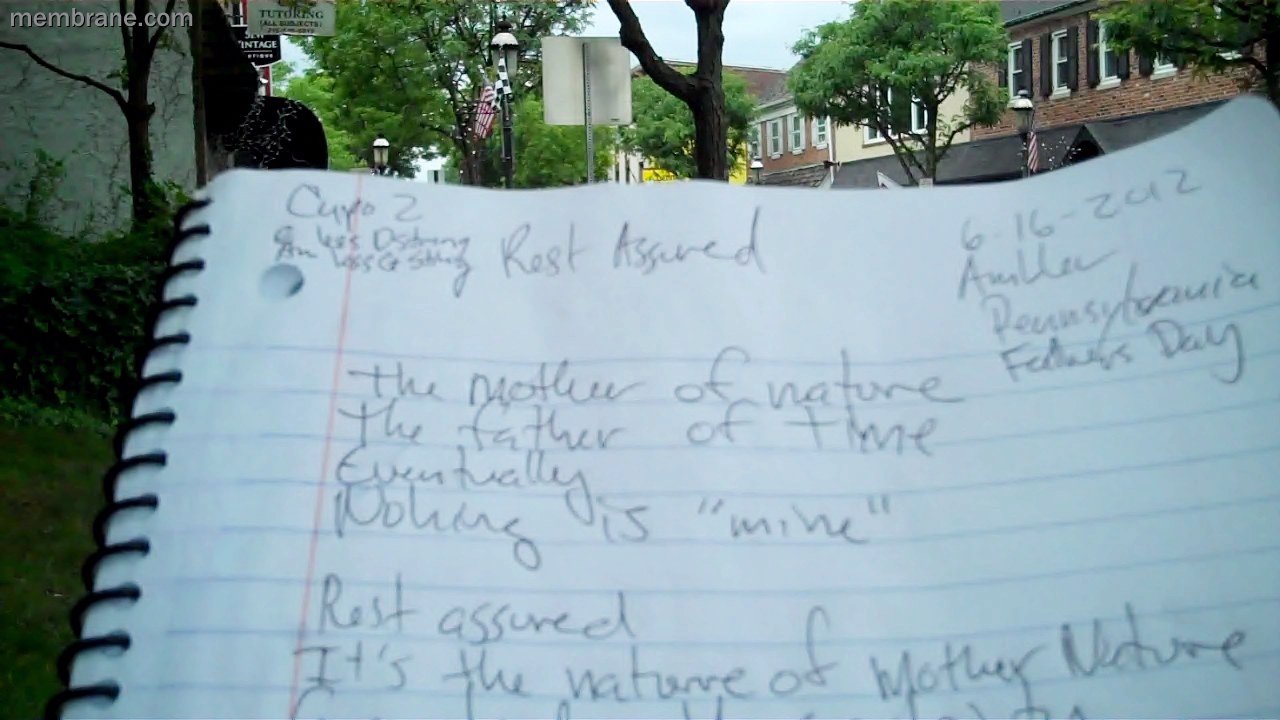 membrane.com
TUTORING
(ALL SUBJECTS)
VINTAGE
Capo 2
Am less D string
Am less G string
Rest Assured
6-16-2012
Ambler
Pennsylvania
Fathers Day
The mother of nature
The father of time
Eventually
Nothing is "mine"
Rest assured
It's the nature of Mother Nature